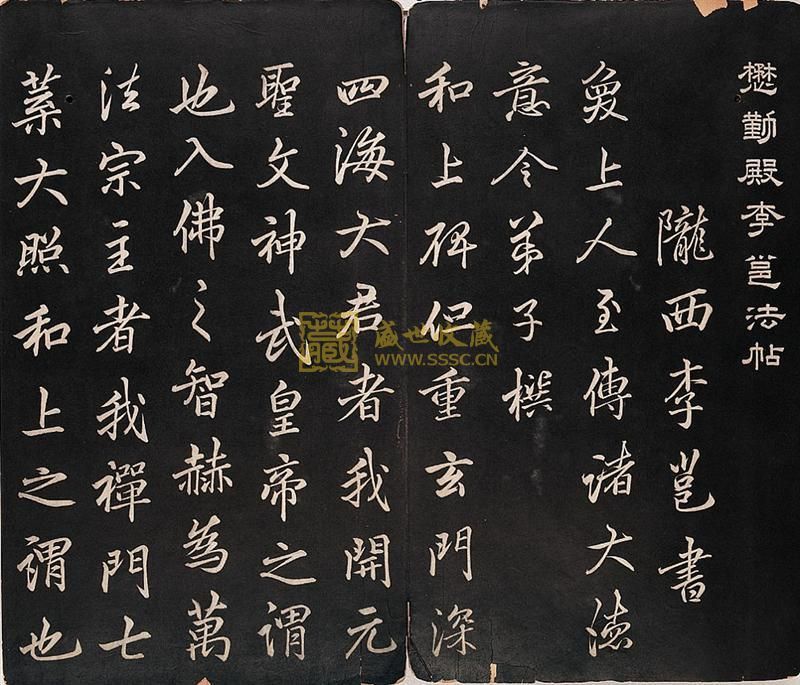 懋勤殿李邕法帖
隴西李邕書
奐上人至傳諸大德
意令弟子撰
和上碑但重玄門深
四海大君者我開元
聖文神武皇帝之謂
也入佛之智赫為萬
法宗主者我禪門七
葉大照和上之謂也
藏
盛世收藏
www.sssc.cn